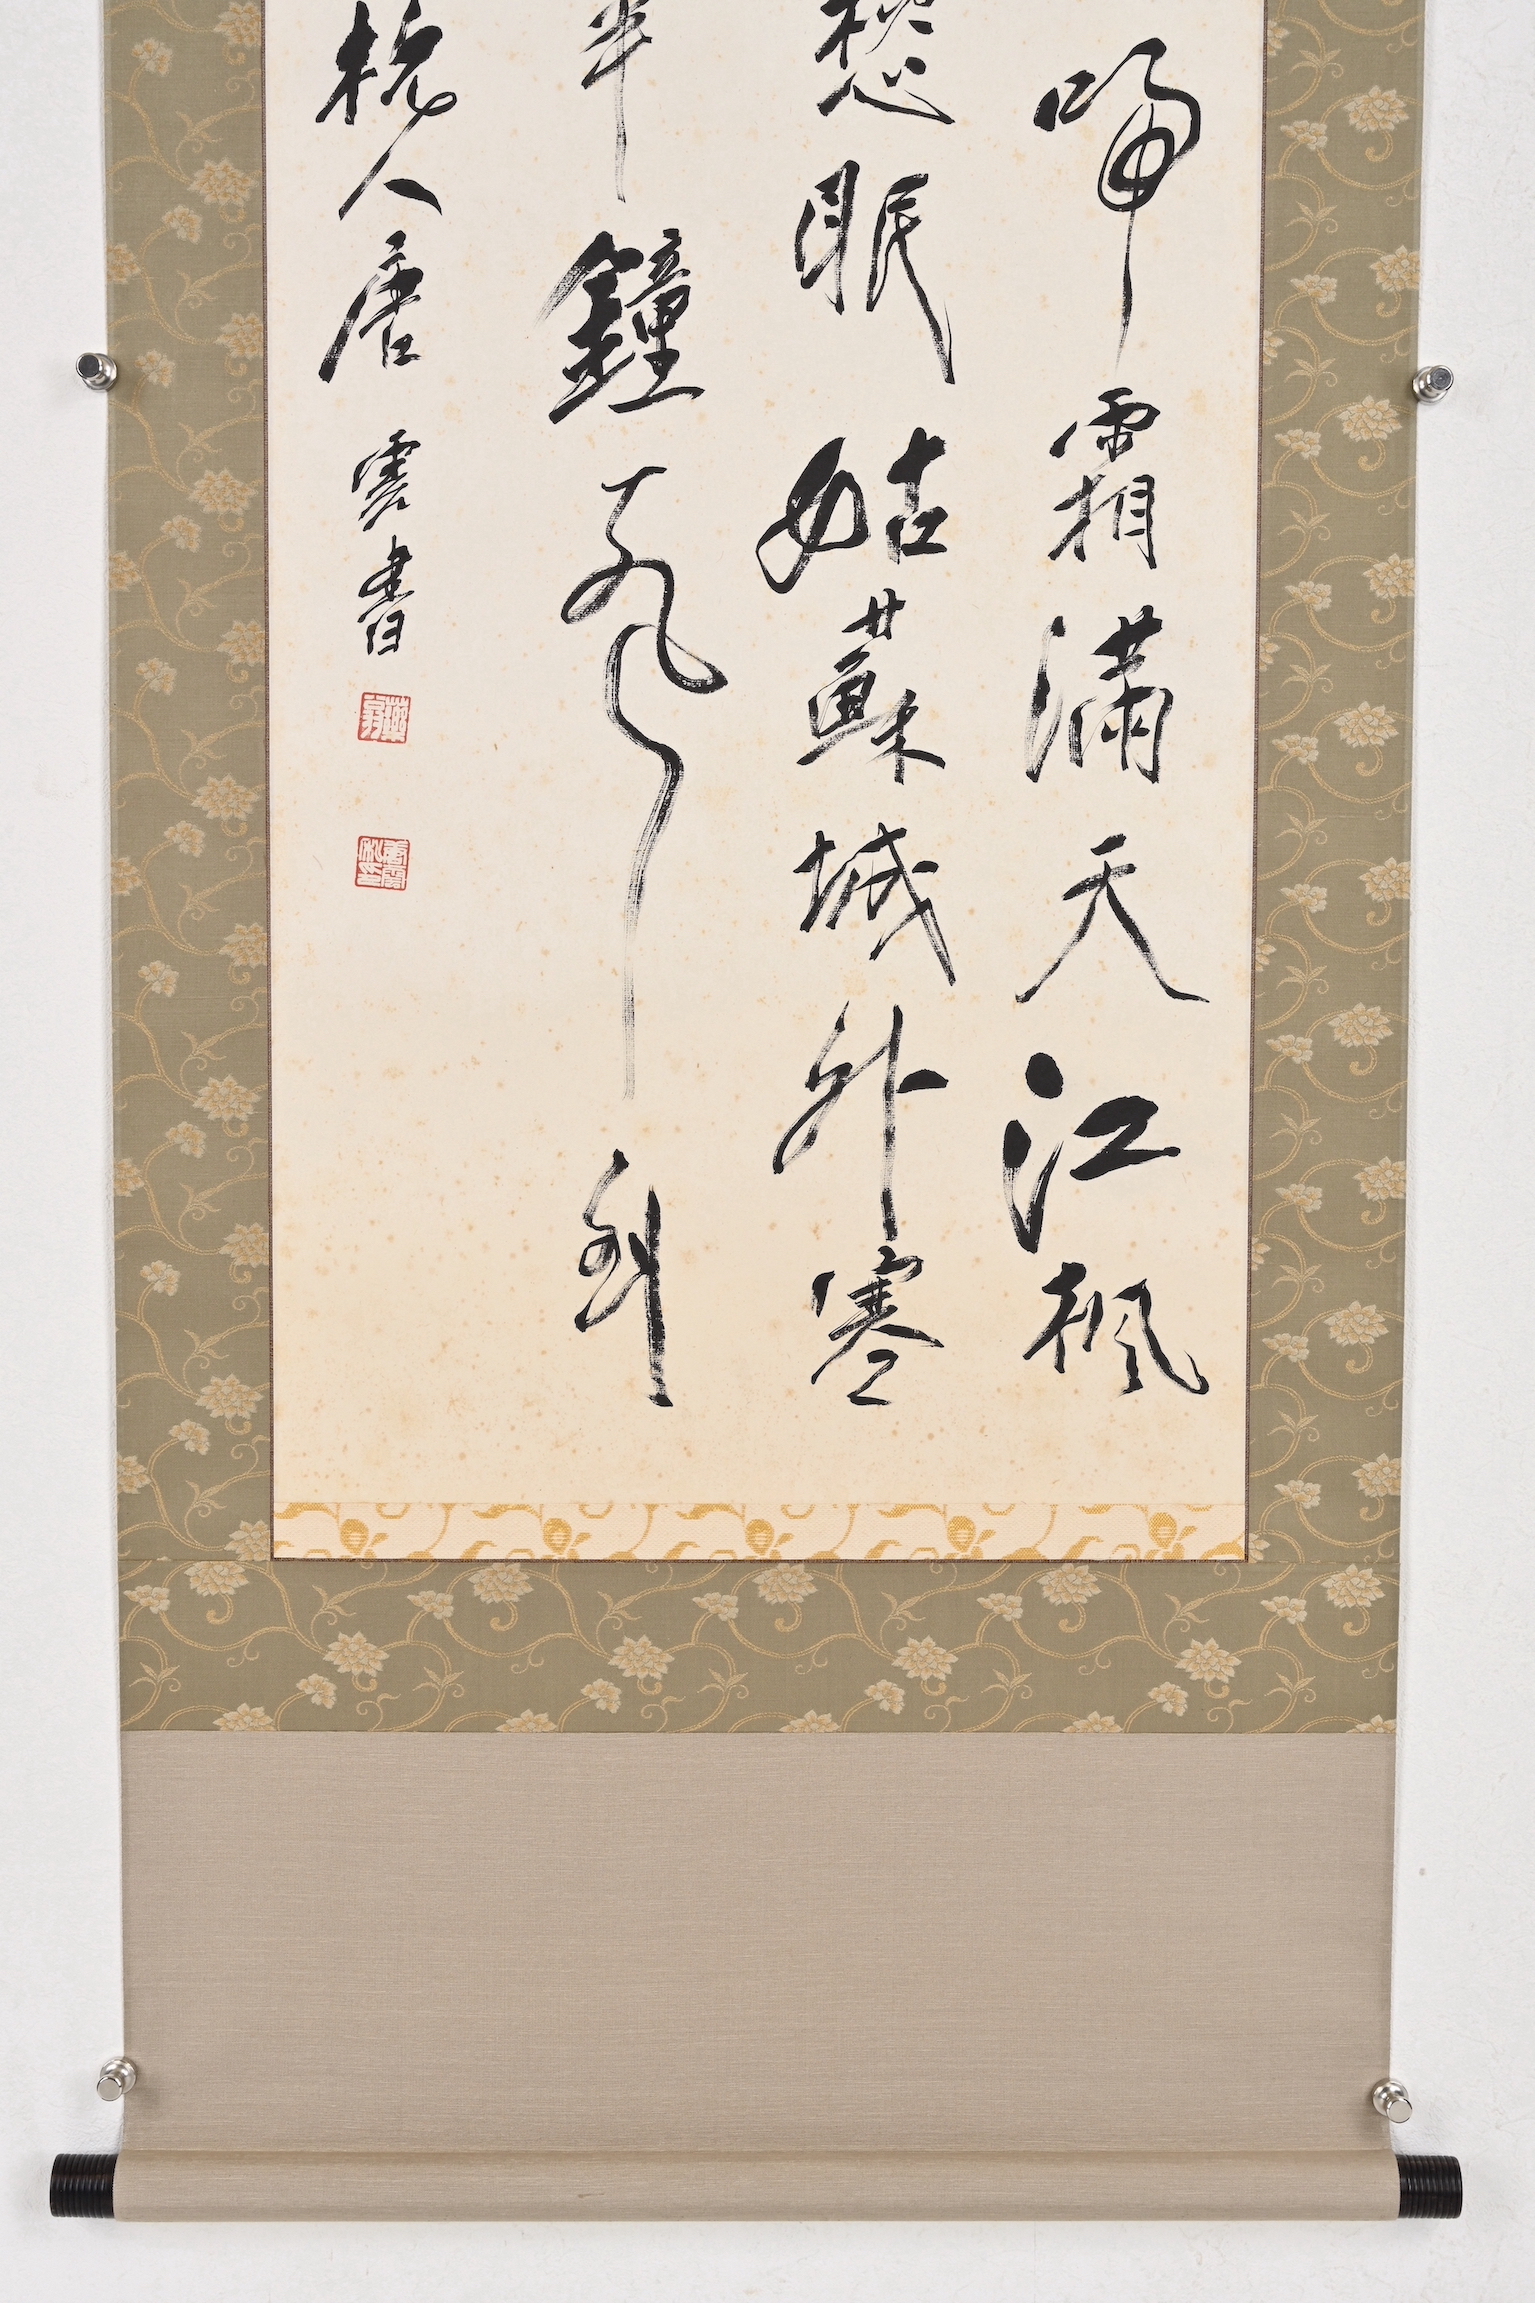 啼霜滿天江楓
愁眠姑蘇城外寒
半鐘聲到
杭人唐雲書
藥翁